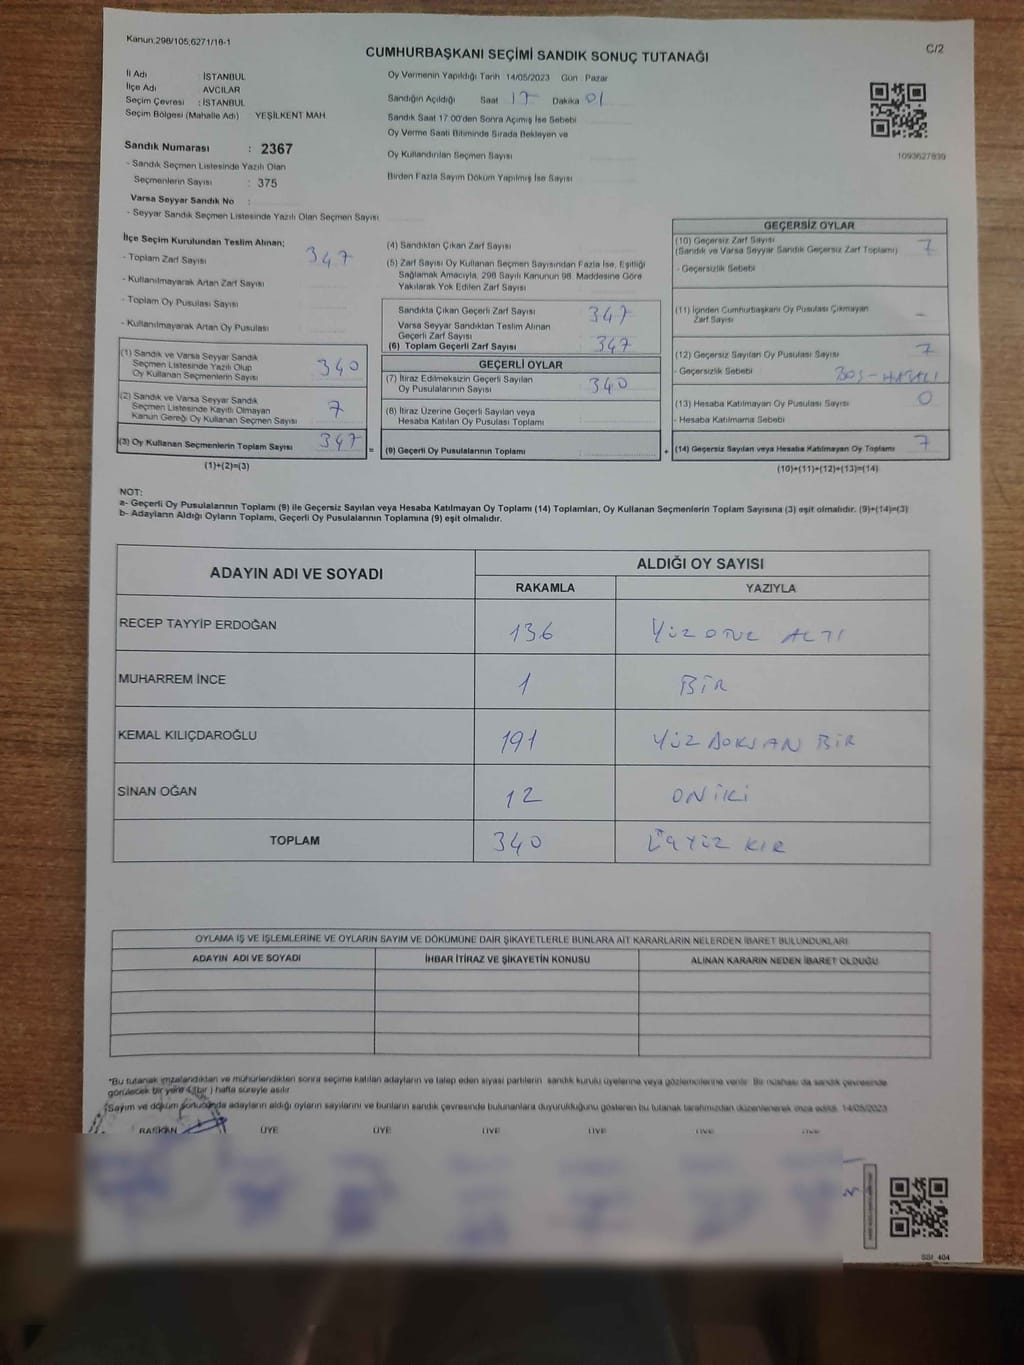 Kanun;298/105;6271/16-1
C/2
CUMHURBAŞKANI SEÇİMİ SANDIK SONUÇ TUTANAĞI
İl Adı : İSTANBUL
İlçe Adı AVCILAR
Seçim Çevresi : İSTANBUL
Seçim Bölgesi (Mahalle Adı) YEŞİLKENT MAH
Sandık Numarası : 2367
- Sandık Seçmen Listesinde Yazılı Olan
Seçmenlerin Sayısı : 375
Varsa Seyyar Sandık No :
- Seyyar Sandık Seçmen Listesinde Yazılı Olan Seçmen Sayısı
Oy Vermenin Yapıldığı Tarih 14/05/2023 Gün : Pazar
Sandığın Açıldığı Saat 17 Dakika 01
Sandık Saat 17.00'den Sonra Açılmış İse Sebebi
Oy Verme Saati Bitiminde Sırada Bekleyen ve
Oy Kullandırılan Seçmen Sayısı
Birden Fazla Sayım Döküm Yapılmış İse Sayısı
1093627839
İlçe Seçim Kurulundan Teslim Alınan;
- Toplam Zarf Sayısı 347
- Kullanılmayarak Artan Zarf Sayısı
- Toplam Oy Pusulası Sayısı
- Kullanılmayarak Artan Oy Pusulası
(1) Sandık ve Varsa Seyyar Sandık
Seçmen Listesinde Yazılı Olup
Oy Kullanan Seçmenlerin Sayısı 340
(2) Sandık ve Varsa Seyyar Sandık
Seçmen Listesinde Kayıtlı Olmayan
Kanun Gereği Oy Kullanan Seçmen Sayısı 7
(3) Oy Kullanan Seçmenlerin Toplam Sayısı 347
(1)+(2)=(3)
(4) Sandıktan Çıkan Zarf Sayısı
(5) Zarf Sayısı Oy Kullanan Seçmen Sayısından Fazla İse, Eşitliği
Sağlamak Amacıyla, 298 Sayılı Kanunun 98. Maddesine Göre
Yakılarak Yok Edilen Zarf Sayısı
Sandıkta Çıkan Geçerli Zarf Sayısı 347
Varsa Seyyar Sandıktan Teslim Alınan
Geçerli Zarf Sayısı
(6) Toplam Geçerli Zarf Sayısı 347
GEÇERLİ OYLAR
(7) İtiraz Edilmeksizin Geçerli Sayılan
Oy Pusulalarının Sayısı 340
(8) İtiraz Üzerine Geçerli Sayılan veya
Hesaba Katılan Oy Pusulası Toplamı
= (9) Geçerli Oy Pusulalarının Toplamı
GEÇERSİZ OYLAR
(10) Geçersiz Zarf Sayısı
(Sandık ve Varsa Seyyar Sandık Geçersiz Zarf Toplamı) 7
- Geçersizlik Sebebi
(11) İçinden Cumhurbaşkanı Oy Pusulası Çıkmayan
Zarf Sayısı –
(12) Geçersiz Sayılan Oy Pusulası Sayısı 7
- Geçersizlik Sebebi BOŞ-HATALI
(13) Hesaba Katılmayan Oy Pusulası Sayısı 0
- Hesaba Katılmama Sebebi
+ (14) Geçersiz Sayılan veya Hesaba Katılmayan Oy Toplamı 7
(10)+(11)+(12)+(13)=(14)
NOT:
a- Geçerli Oy Pusulalarının Toplamı (9) ile Geçersiz Sayılan veya Hesaba Katılmayan Oy Toplamı (14) Toplamları, Oy Kullanan Seçmenlerin Toplam Sayısına (3) eşit olmalıdır. (9)+(14)=(3)
b- Adayların Aldığı Oyların Toplamı, Geçerli Oy Pusulalarının Toplamına (9) eşit olmalıdır.
ADAYIN ADI VE SOYADI
ALDIĞI OY SAYISI
RAKAMLA YAZIYLA
RECEP TAYYİP ERDOĞAN 136 YÜZ OTUZ ALTI
MUHARREM İNCE 1 BİR
KEMAL KILIÇDAROĞLU 191 YÜZ DOKSAN BİR
SİNAN OĞAN 12 ONİKİ
TOPLAM 340 ÜÇYÜZ KIR
OYLAMA İŞ VE İŞLEMLERİNE VE OYLARIN SAYIM VE DÖKÜMÜNE DAİR ŞİKAYETLERLE BUNLARA AİT KARARLARIN NELERDEN İBARET BULUNDUKLARI
ADAYIN ADI VE SOYADI İHBAR İTİRAZ VE ŞİKAYETİN KONUSU ALINAN KARARIN NEDEN İBARET OLDUĞU
*Bu tutanak imzalandıktan ve mühürlendikten sonra seçime katılan adayların ve talep eden siyasi partilerin sandık kurulu üyelerine veya gözlemcilerine verilir. Bir nüshası da sandık çevresinde
görülecek bir yere 1 (bir) hafta süreyle asılır.
*Sayım ve döküm sonucunda adayların aldığı oyların sayılarını ve bunların sandık çevresinde bulunanlara duyurulduğunu gösteren bu tutanak tarafımızdan düzenlenerek imza edildi. 14/05/2023
BAŞKAN ÜYE ÜYE ÜYE ÜYE ÜYE ÜYE
SSI_404